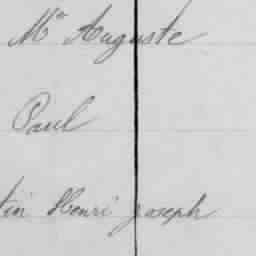 Mie Auguste
Paul
tin Henri Joseph